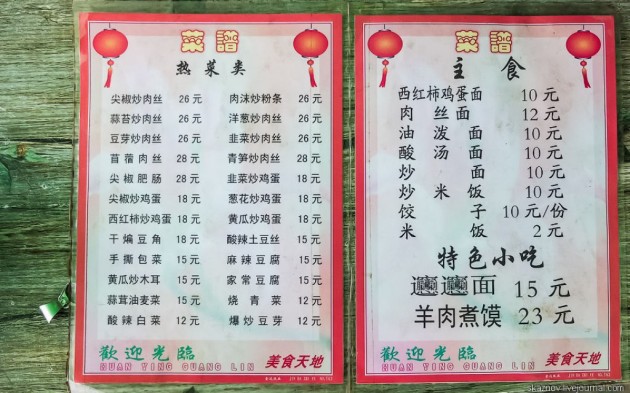 菜譜
热菜类
尖椒炒肉丝 26元 肉沫炒粉条 26元
蒜苔炒肉丝 26元 洋葱炒肉丝 26元
豆芽炒肉丝 26元 韭菜炒肉丝 26元
苜蓿肉丝 28元 青笋炒肉丝 28元
尖椒肥肠 28元 韭菜炒鸡蛋 18元
尖椒炒鸡蛋 18元 葱花炒鸡蛋 18元
西红柿炒鸡蛋 18元 黄瓜炒鸡蛋 18元
干煸豆角 18元 酸辣土豆丝 15元
手撕包菜 15元 麻辣豆腐 15元
黄瓜炒木耳 15元 家常豆腐 15元
蒜茸油麦菜 15元 烧青菜 12元
酸辣白菜 12元 爆炒豆芽 12元
歡迎光臨
HUAN YING GUANG LIN
美食天地
菜譜
主食
西红柿鸡蛋面 10元
肉丝面 12元
油泼面 10元
酸汤面 10元
炒面 10元
炒米饭 10元
饺子 10元/份
米饭 2元
特色小吃
𰻞𰻞面 15元
羊肉煮馍 23元
歡迎光臨
HUAN YING GUANG LIN
美食天地
skaznov.livejournal.com